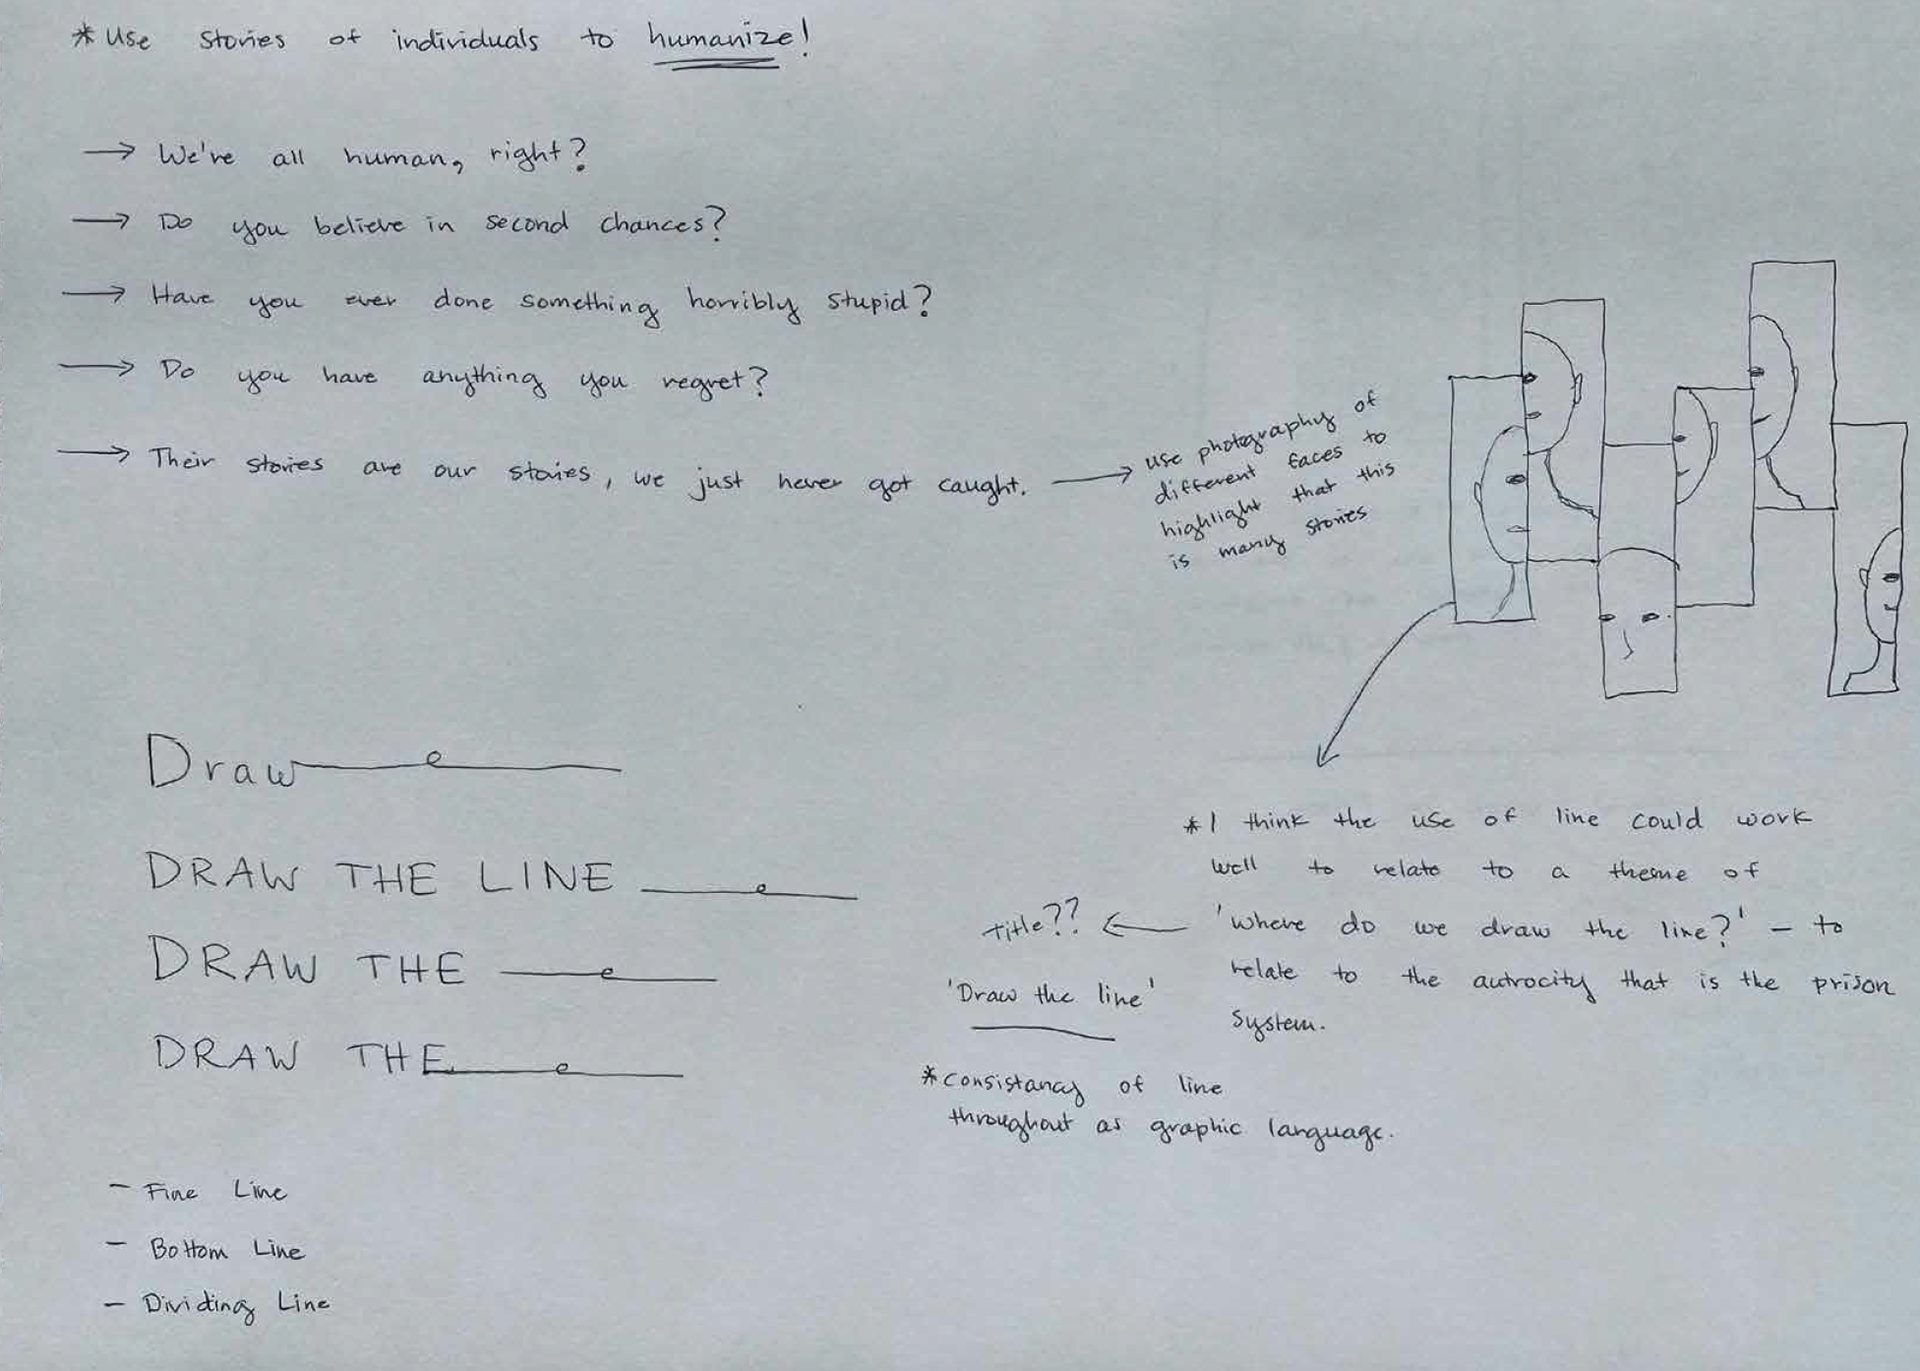 * Use stories of individuals to humanize!
→ We're all human, right?
→ Do you believe in second chances?
→ Have you ever done something horribly stupid?
→ Do you have anything you regret?
→ Their stories are our stories, we just never got caught. →
use photography of
different faces to
highlight that this
is many stories
Draw
DRAW THE LINE
DRAW THE
DRAW THE
- Fine Line
- Bottom Line
- Dividing Line
* I think the use of line could work
well to relate to a theme of
'where do we draw the line?' - to
relate to the autrocity that is the prison
system.
title?? ←
'Draw the line'
* consistancy of line
throughout as graphic language.